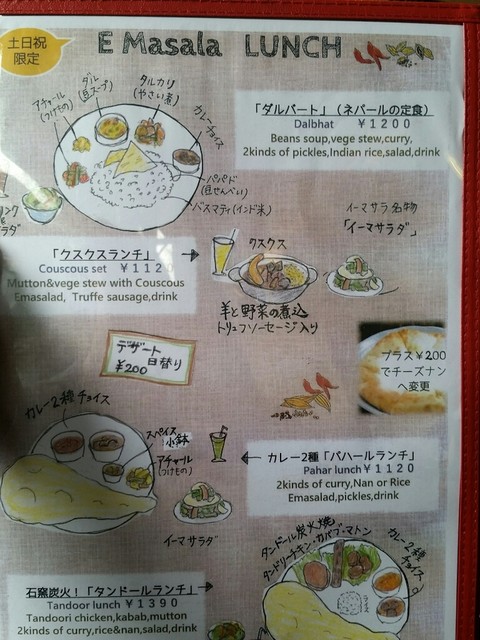 土日祝
限定
E Masala LUNCH
アチャール
(つけもの)
ダル
(豆スープ)
タルカリ
(やさい煮)
カレーチョイス
パパド
(豆せんべい)
バスマティ(インド米)
「ダルバート」(ネパールの定食)
Dalbhat ¥1200
Beans soup,vege stew,curry,
2kinds of pickles,Indian rice,salad,drink
「クスクスランチ」
Couscous set ¥112
Mutton&vege stew with Couscous
Emasalad, Truffe sausage,drink
クスクス
羊と野菜の煮込
トリュフソーセージ入り
イーマサラ名物
「イーマサラダ」
デザート
日替り
¥200
プラス¥200
でチーズナン
へ変更
カレー2種チョイス
スパイス
小鉢
アチャール
(つけもの)
イーマサラダ
カレー2種「パハールランチ」
Pahar lunch¥1120
2kinds of curry,Nan or Rice
Emasalad,pickles,drink
タンドール炭火焼
タンドリーチキン・カバブ・マトン
カレー2種
チョイス
石窯炭火!「タンドールランチ」
Tandoor lunch ¥1390
Tandoori chicken,kabab,mutton
2kinds of curry,rice&nan,salad,drink